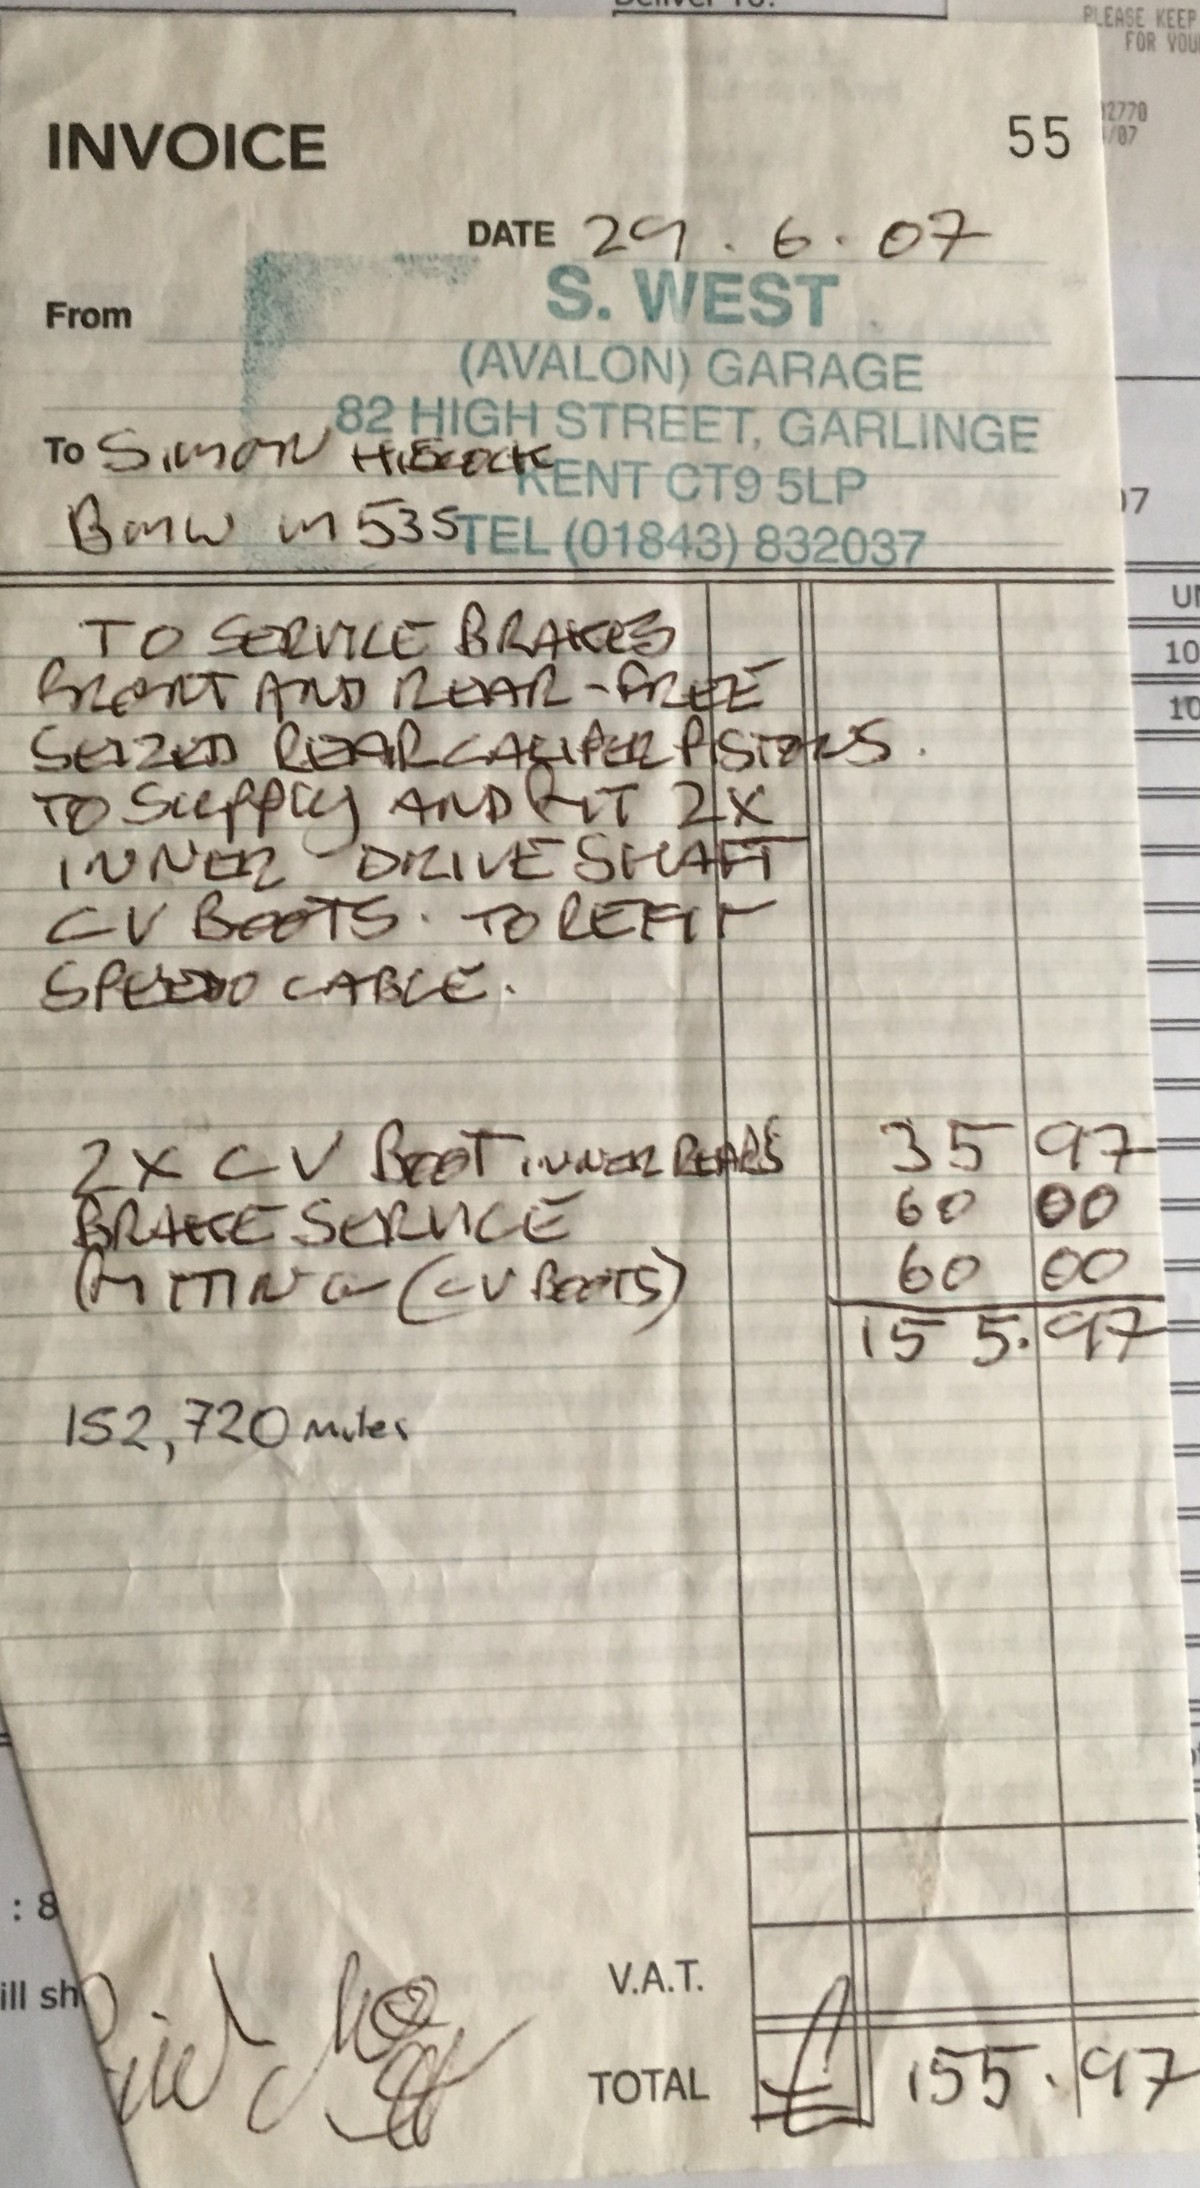 Deliver To:
PLEASE KEEP
FOR YOU
2770
/07
INVOICE
55
DATE 29.6.07
From
S. WEST
(AVALON) GARAGE
82 HIGH STREET, GARLINGE
KENT CT9 5LP
TEL (01843) 832037
To Simon
BMW M535
07
TO SERVICE BRAKES
FRONT AND REAR - FREE
SEIZED REAR CALIPER PISTONS.
TO SUPPLY AND FIT 2X
INNER DRIVESHAFT
CV BOOTS. TO REFIT
SPEEDO CABLE.
10
10
2X CV BOOT INNER REARS 35 97
BRAKE SERVICE 60 00
FITTING (CV BOOTS) 60 00
155.97
152,720 miles
: 8
ill sh
V.A.T.
TOTAL £ 155.97